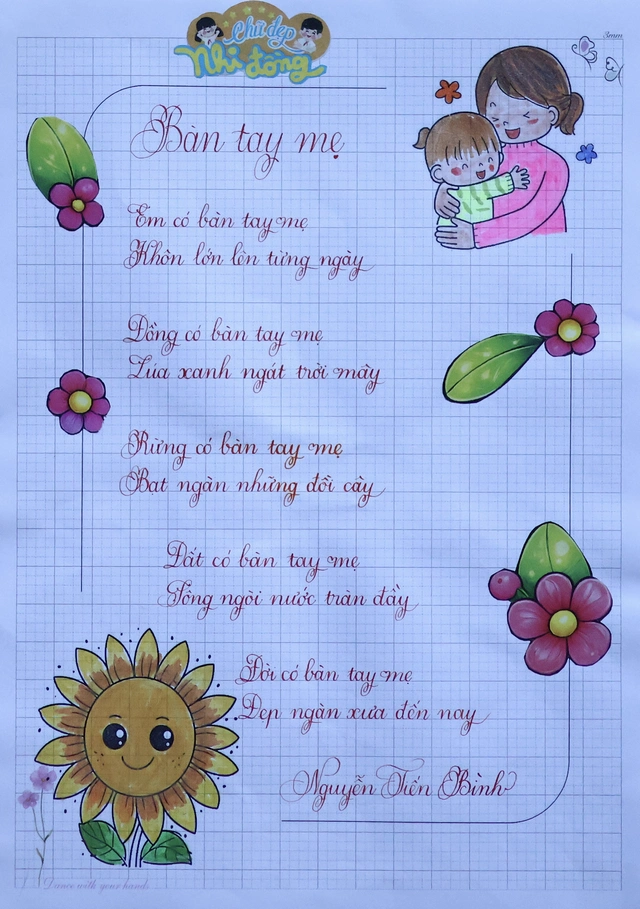 Chữ đẹp
Nhi đồng
3mm
Bàn tay mẹ
Em có bàn tay mẹ
Khôn lớn lên từng ngày
Đồng có bàn tay mẹ
Lúa xanh ngát trời mây
Rừng có bàn tay mẹ
Bạt ngàn những đồi cây
Đất có bàn tay mẹ
Sông ngòi nước tràn đầy
Đời có bàn tay mẹ
Đẹp ngàn xưa đến nay
Nguyễn Tiến Bình
Dance with your hands